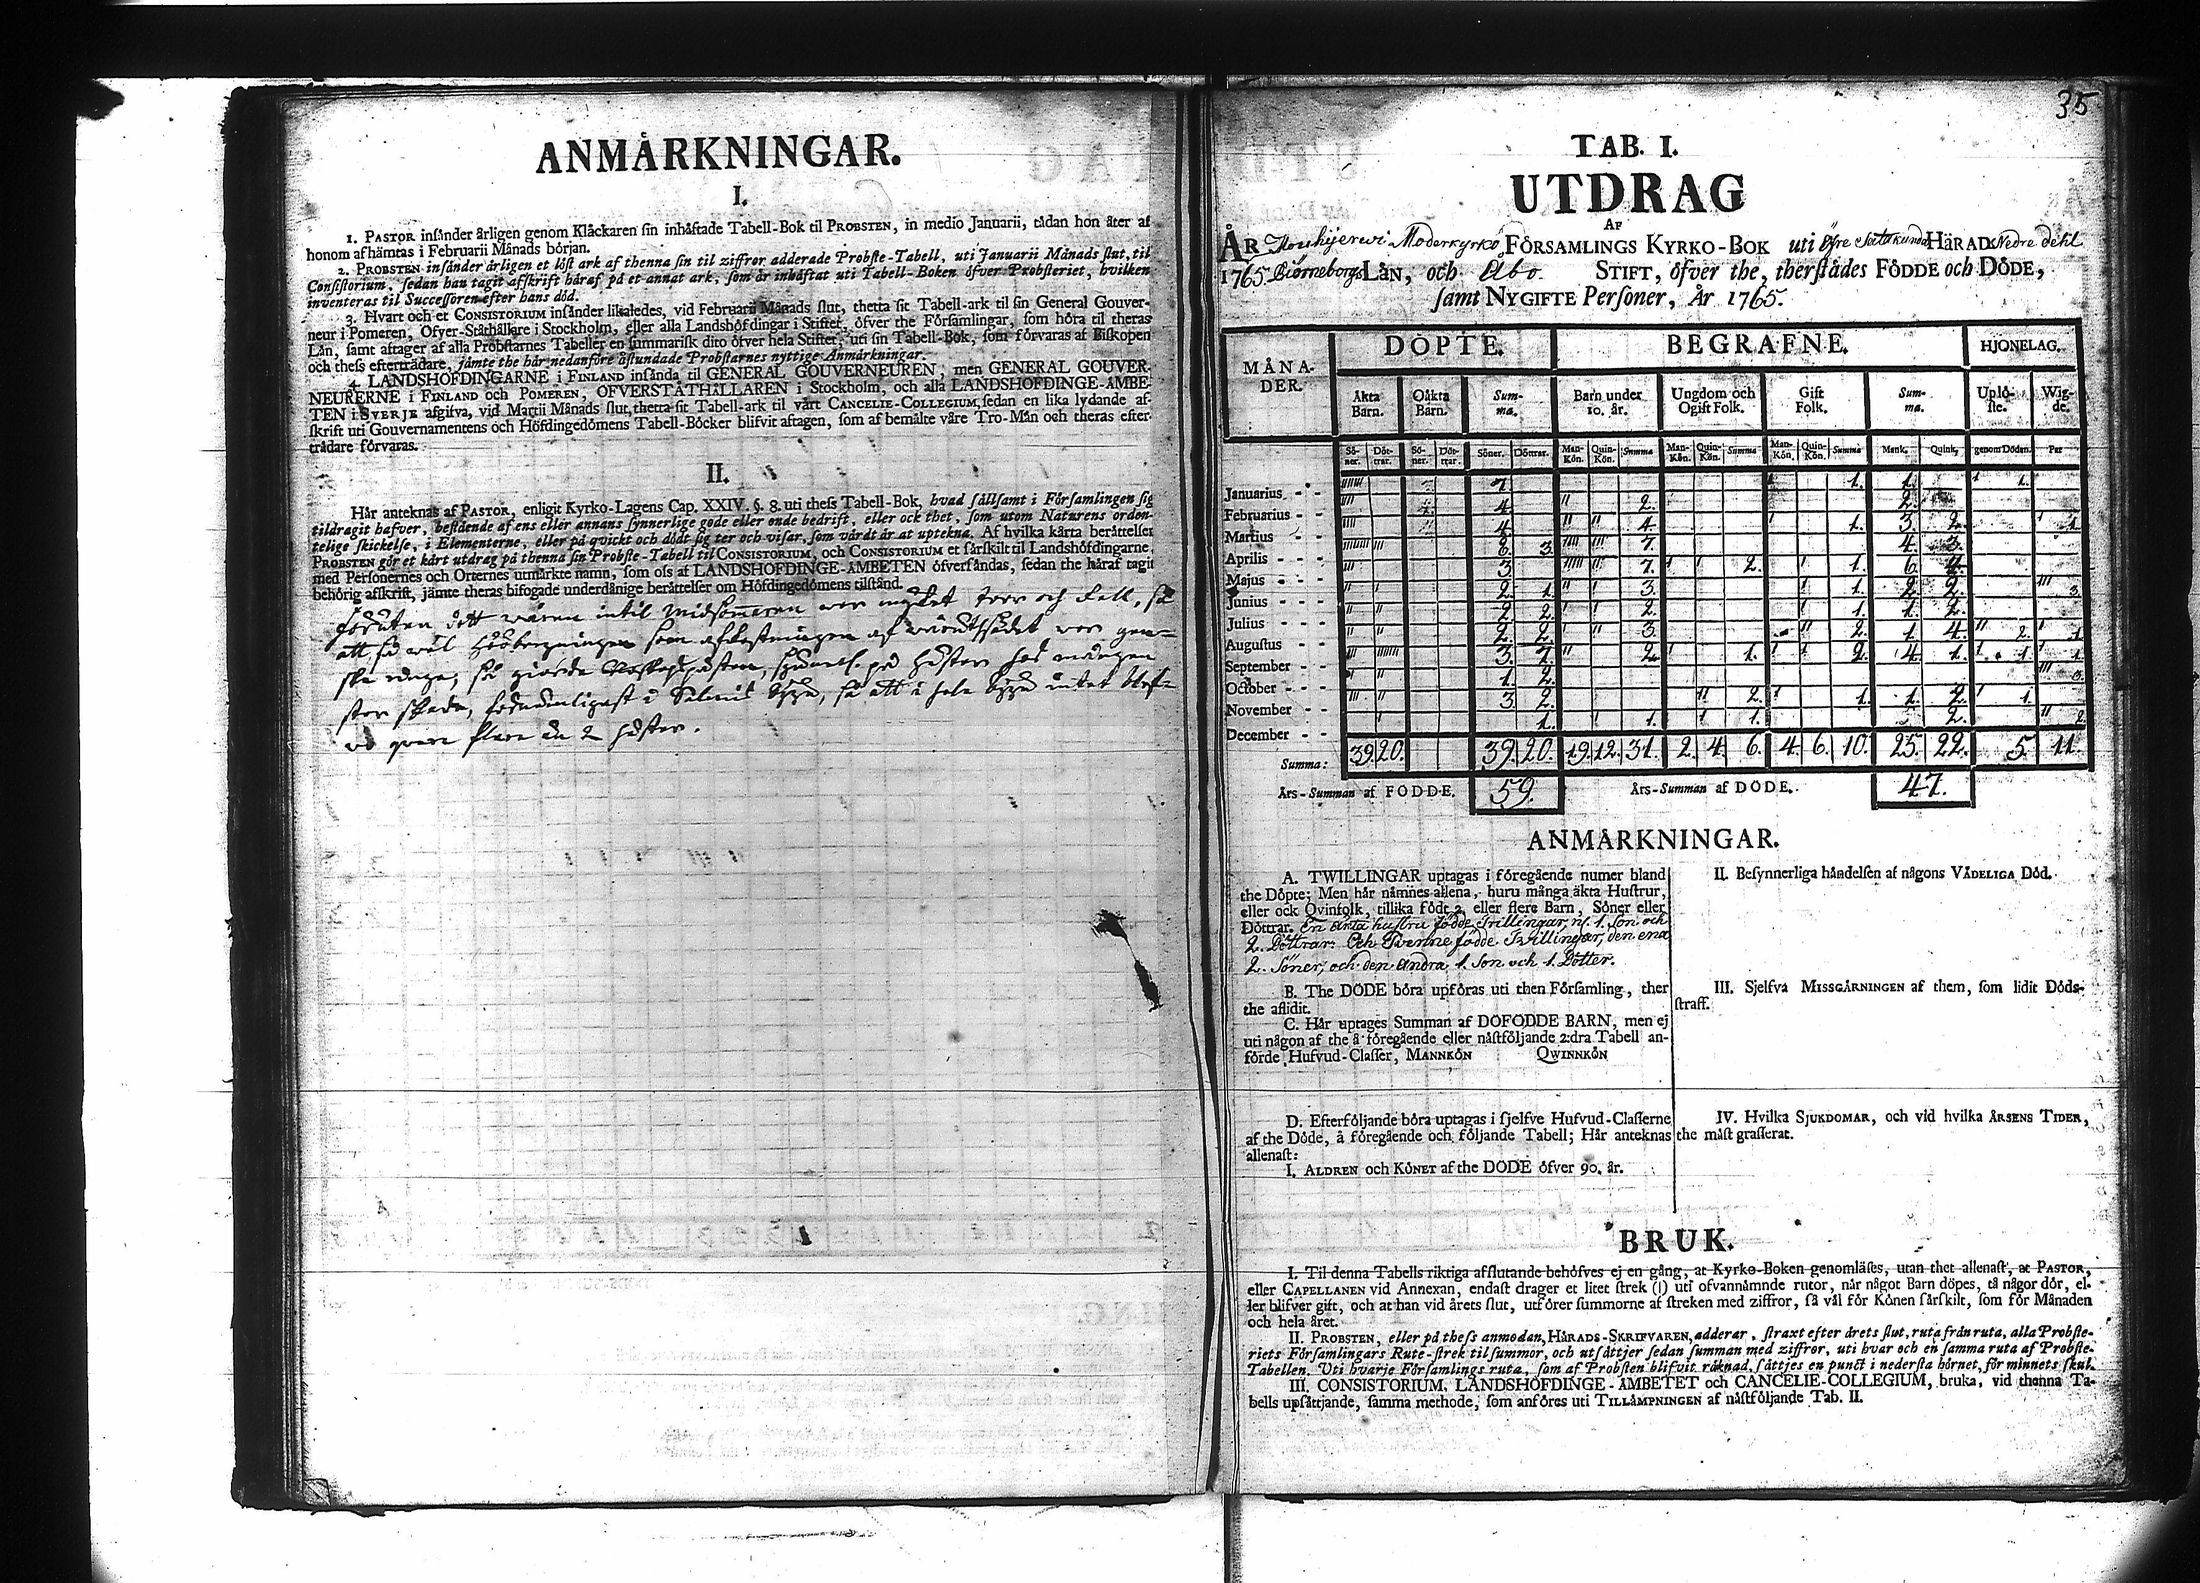 ANMÅRKNINGAR.
I.
1. PASTOR insånder årligen genom Klåckaren sin inhåftade Tabell-Bok til PROBSTEN, in medio Januarii, tådan hon åter af
honom afhåmtas i Februarii Månads början.
2. PROBSTEN insånder årligen et löst ark af thenna sin til ziffror adderade Probste-Tabell, uti Januarii Månads slut, til
Consistorium, sedan han tagit afskrift håraf på et annat ark, som år inhåftat uti Tabell-Boken öfver Probsteriet, hvilken
inventeras til Successoren efter hans död.
3. Hvart och et CONSISTORIUM insånder likaledes, vid Februarii Månads slut, thetta sit Tabell-ark til sin General Gouver-
neur i Pomeren, Öfver-Ståthållare i Stockholm, eller alla Landshöfdingar i Stiftet, öfver the Församlingar, som höra til theras
Lån, samt aftager af alla Probstarnes Tabeller en summarisk dito öfver hela Stiftet, uti sin Tabell-Bok, som förvaras af Biskopen
och thess eftertrådare, jåmte the hår nedanföre åstundade Probstarnes nyttige Anmårkningar.
4. LANDSHÖFDINGARNE i FINLAND insånda til GENERAL GOUVERNEUREN, men GENERAL GOUVER-
NEURERNE i FINLAND och POMEREN, ÖFVERSTÅTHÅLLAREN i Stockholm, och alla LANDSHÖFDINGE-ÅMBE-
TEN i SVERJE afgifva, vid Martii Månads slut, thetta sit Tabell-ark til vårt CANCELIE-COLLEGIUM, sedan en lika lydande af-
skrift uti Gouvernamentens och Höfdingedömens Tabell-Böcker blifvit aftagen, som af bemålte våre Tro-Mån och theras efter-
trådare förvaras.
II.
Hår anteknas af PASTOR, enligit Kyrko-Lagens Cap. XXIV. §. 8. uti thess Tabell-Bok, hvad sållsamt i Församlingen sig
tildragit hafver, bestående af ens eller annans synnerlige gode eller onde bedrift, eller ock thet, som utom Naturens orden-
telige skickelse, i Elementerne, eller på qvickt och dödt sig ter och visar, som vårdt år at uptekna. Af hvilka kårta beråttelser
PROBSTEN gör et kårt utdrag på thenna sin Probste-Tabell til CONSISTORIUM, och CONSISTORIUM et sårskilt til Landshöfdingarne,
med Personernes och Orternes utmårkte namn, som oss af LANDSHÖFDINGE-ÅMBETEN öfversåndas, sedan the håraf tagit
behörig afskrift, jåmte theras bifogade underdånige beråttelser om Höfdingedömens tilstånd.
Förutan dett wåren intil Midsommaren war mycket torr och kall, så
att så wäl Höbergningen som afkastningen af wårutsädet war gan-
ske ringa, så giorde på hästar hos mången
stor skada, i by, så att i hela byn intet blef-
wo qwar flere än 2 hästar.
35
TAB. I.
UTDRAG
AF
ÅR Moderkyrko FÖRSAMLINGS KYRKO-BOK uti Öfre HÄRADS Nedre dehl
1765. Biörneborgs LÅN, och Åbo STIFT, öfver the, therstådes FÖDDE och DÖDE,
samt NYGIFTE Personer, År 1765.
MÅNA-DER. DÖPTE. BEGRAFNE. HJONELAG.
Åkta Barn. Oåkta Barn. Sum-ma. Barn under 10. år. Ungdom och Ogift Folk. Gift Folk. Sum-ma. Uplö-ste. Wig-de.
Sö-ner. Döt-trar. Sö-ner. Döt-trar. Söner. Döttrar. Man-Kön. Quin-Kön. Summa Man-Kön. Quin-Kön. Summa Man-Kön. Quin-Kön. Summa Mank. Quink. genom Döden. Par
Januarius - - 7. 1. 1. 1.
Februarius - - 4. 2. 2.
Martius - - 4. 4. 1. 3. 2. 1.
Aprilis - - 8. 3. 7. 4. 3.
Majus - - 3. 7. 2. 1. 6. 4.
Junius - - 2. 1. 3. 1. 2. 2. 3.
Julius - - 2. 2. 2. 1. 1. 2.
Augustus - - 2. 2. 3. 2. 1. 4. 2. 1.
September - - 3. 7. 2. 1. 2. 4. 1. 1. 1.
October - - 1. 2. 3.
November - - 3. 2. 2. 1. 1. 2. 1.
December - - 1. 1. 1. 2. 2.
Summa: 39. 20. 39. 20. 19. 12. 31. 2. 4. 6. 4. 6. 10. 25. 22. 5. 11.
Års-Summan af FÖDDE. 59. Års-Summan af DÖDE. 47.
ANMÅRKNINGAR.
A. TWILLINGAR uptagas i föregående numer bland
the Döpte; Men hår nåmnes allena, huru många åkta Hustrur,
eller ock Qvinfolk, tillika födt 2. eller flere Barn, Söner eller
Döttrar. En äkta hustru födde Trillingar, nl. 1. Son och
2. Döttrar: Och Tvenne födde Tvillingar, den ena
2. Söner, och den Andra 1. Son och 1. Dotter.
B. The DÖDE böra upföras uti then Församling, ther
the aflidit.
C. Hår uptages Summan af DÖFÖDDE BARN, men ej
uti någon af the å föregående eller nåstföljande 2:dra Tabell an-
förde Hufvud-Classer, MANNKÖN QWINNKÖN
D. Efterföljande böra uptagas i sjelfve Hufvud-Classerne
af the Döde, å föregående och följande Tabell; Hår anteknas
allenast:
I. ÅLDREN och KÖNET af the DÖDE öfver 90. år.
II. Besynnerliga håndelsen af någons VÅDELIGA Död.
III. Sjelfva MISSGÅRNINGEN af them, som lidit Döds-
straff.
IV. Hvilka SJUKDOMAR, och vid hvilka ÅRSENS TIDER,
the måst grasserat.
BRUK.
I. Til denna Tabells riktiga afslutande behöfves ej en gång, at Kyrko-Boken genomlåses, utan thet allenast, at PASTOR,
eller CAPELLANEN vid Annexan, endast drager et litet strek (|) uti ofvannåmnde rutor, når något Barn döpes, tå någor dör, el-
ler blifver gift, och at han vid årets slut, utförer summorne af streken med ziffror, så vål för Könen sårskilt, som för Månaden
och hela året.
II. PROBSTEN, eller på thess anmodan, HÅRADS-SKRIFVAREN, adderar, straxt efter årets slut, ruta från ruta, alla Probste-
riets Församlingars Rute-strek til summor, och utsåttjer sedan summan med ziffror, uti hvar och en samma ruta af Probste-
Tabellen. Uti hvarje Församlings ruta, som af Probsten blifvit råknad, såttjes en punct i nedersta hörnet, för minnets skul.
III. CONSISTORIUM, LANDSHÖFDINGE-ÅMBETET och CANCELIE-COLLEGIUM, bruka, vid thenna Ta-
bells upsåttjande, samma methode, som anföres uti TILLÅMPNINGEN af nåstföljande Tab. II.